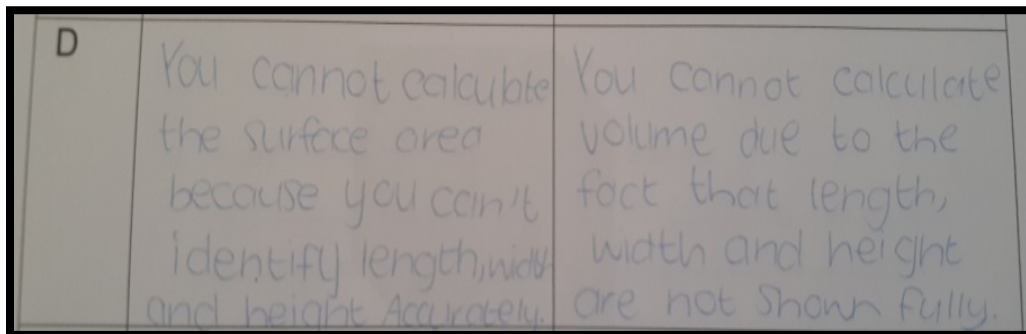 D
You cannot calculate
the surface area
because you can't
identify length, width
and height Accurately.
You cannot calculate
volume due to the
fact that length,
width and height
are not shown fully.